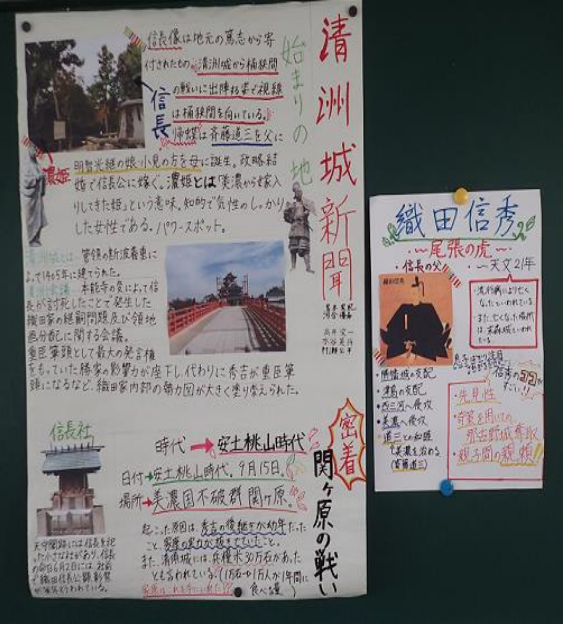 清洲城新聞
始まりの地
信長像は地元の篤志から寄
付されたもの。清洲城から桶狭間
の戦いに出陣する姿で視線
は桶狭間を向いている。
信長
帰蝶は斉藤道三を父に
濃姫
明智光継の娘・小見の方を母に誕生。政略結
婚で信長公に嫁ぐ。濃姫とは「美濃から嫁入
りしてきた姫」という意味。知的で気性のしっかり
した女性である。パワースポット。
清洲城とは 管領の斯波義重に
よって1405年に建てられた。
清洲会議 本能寺の変によって信
長が討死したことで発生した
織田家の継嗣問題及び領地
再分配に関する会議。
重臣筆頭として最大の発言権
をもっていた勝家の影響力が低下し代わりに秀吉が重臣筆
頭になるなど、織田家内部の勢力図が大きく塗り替えられた。
信長社
天守閣跡には信長を祀
った小さな社があり、信長
の命日6月2日には
密着
関ヶ原の戦い
時代→安土桃山時代
日付→安土桃山時代。9月15日。
場所→美濃国不破郡 関ヶ原。
起こった原因は、秀吉の後継ぎが幼年だった
こと
また清洲城には、兵糧米30万石があった
とも言われている
(1万石=1万人が1年間に
食べる量)
織田信秀
〜尾張の虎〜
・信長の父
・〜天文21年
流行病により亡く
なったといわれている
また、亡くなった場所
は、末森城といわれ
ている。
・勝幡城の支配
・津島の支配
・西三河へ侵攻
・美濃へ侵攻
・道三との和睦
(斎藤道三)
・先見性
那古野城奪取
・親子間の親頼!